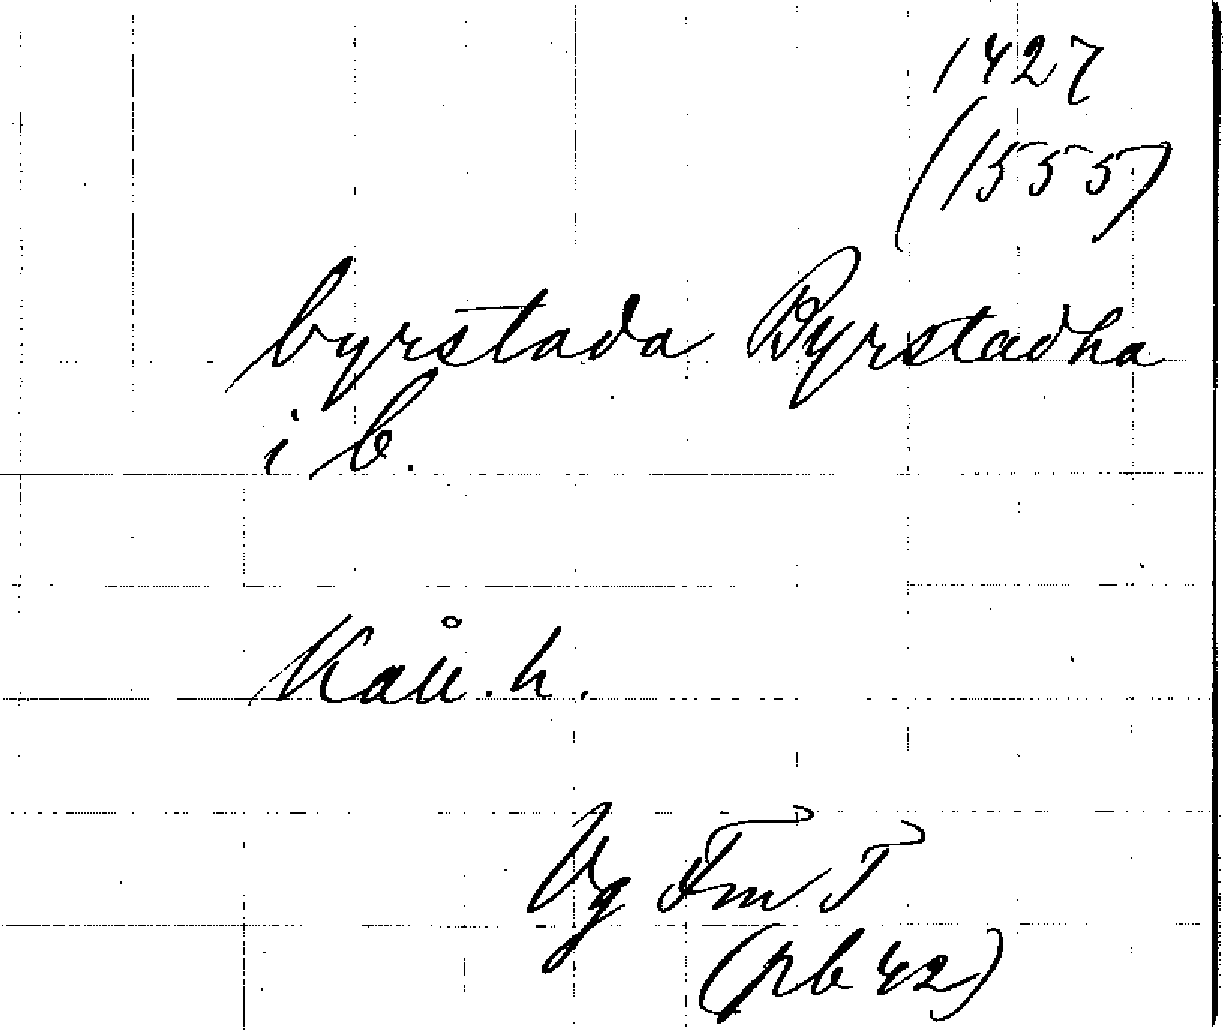 1427
(1555)
byrstada Byrstadha
i b.
Kåll. h.
Vg Fm T
(pb 42)